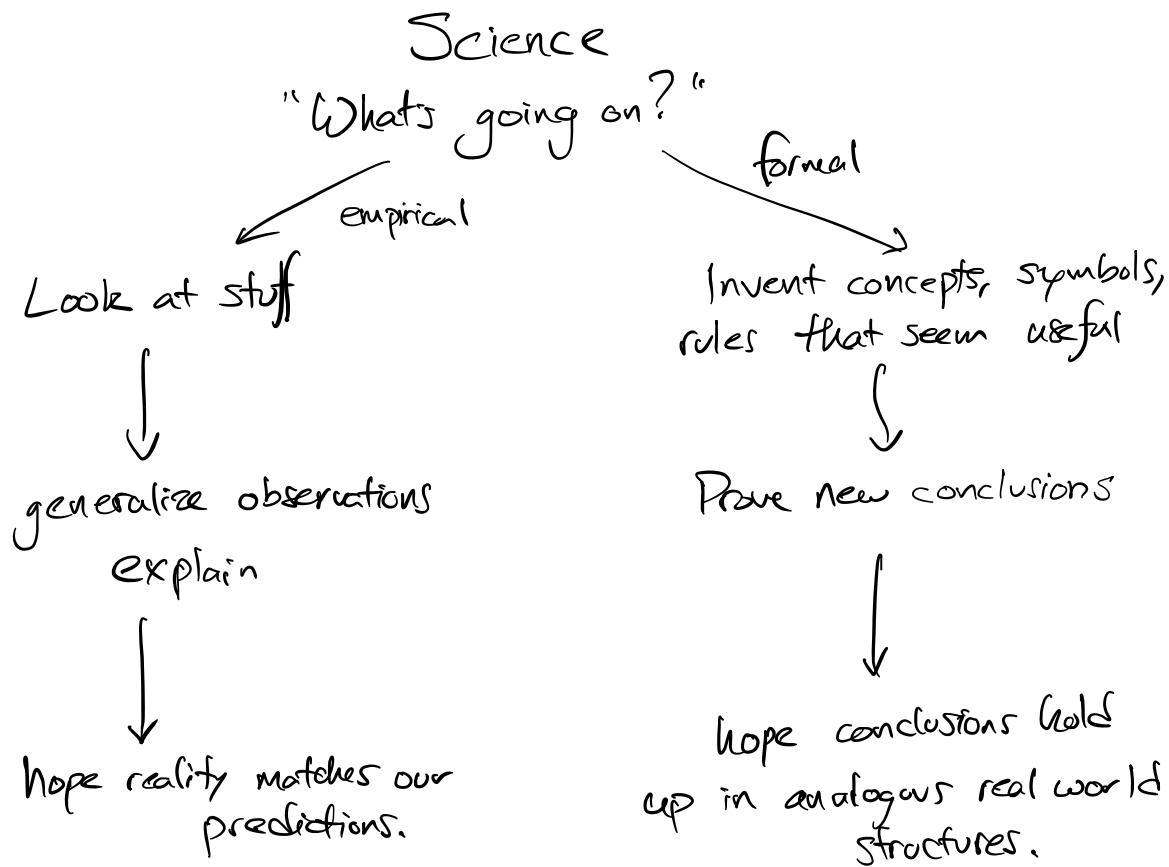 Science
"What's going on?"
empirical
formal
Look at stuff
generalize observations
explain
hope reality matches our
predictions.
Invent concepts, symbols,
rules that seem useful
Prove new conclusions
hope conclusions hold
up in analogous real world
structures.